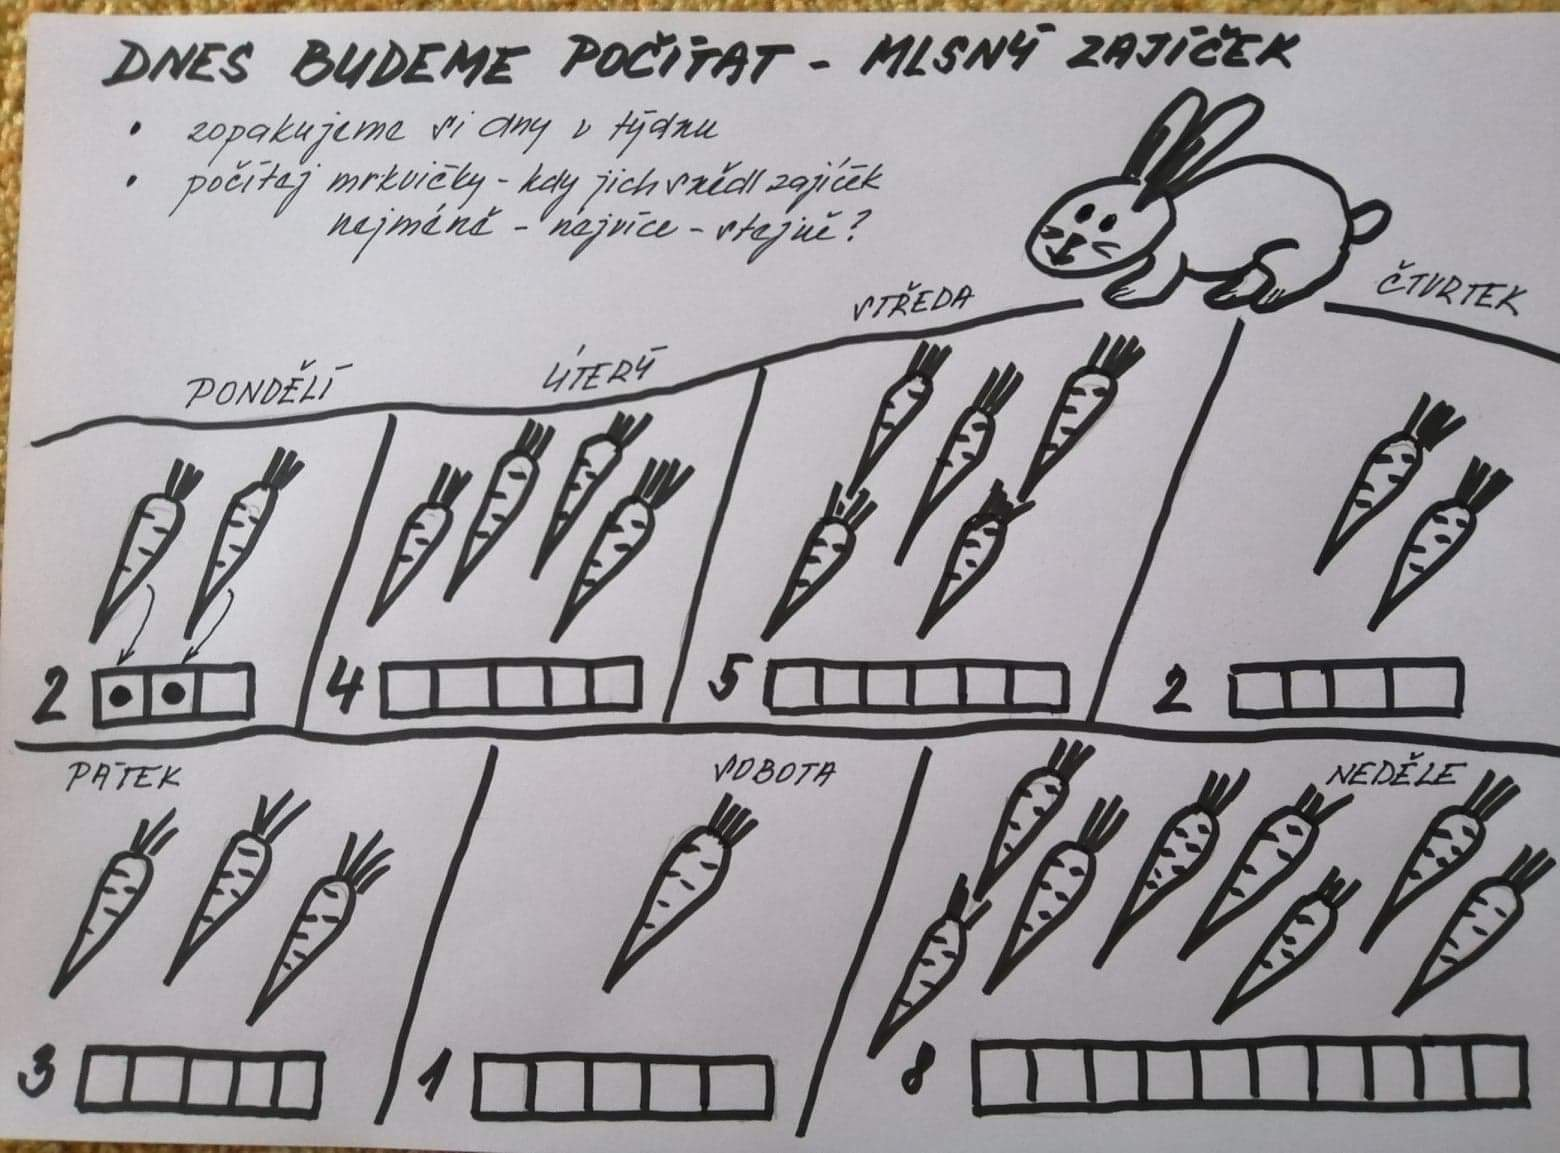 DNES BUDEME POČÍTAT - MLSNÝ ZAJÍČEK
• zopakujeme si dny v týdnu
• počítej mrkvičky - kdy jich snědl zajíček
nejméně - nejvíce - stejně?
PONDĚLÍ
ÚTERÝ
STŘEDA
ČTVRTEK
2
4
5
2
PÁTEK
SOBOTA
NEDĚLE
3
1
8